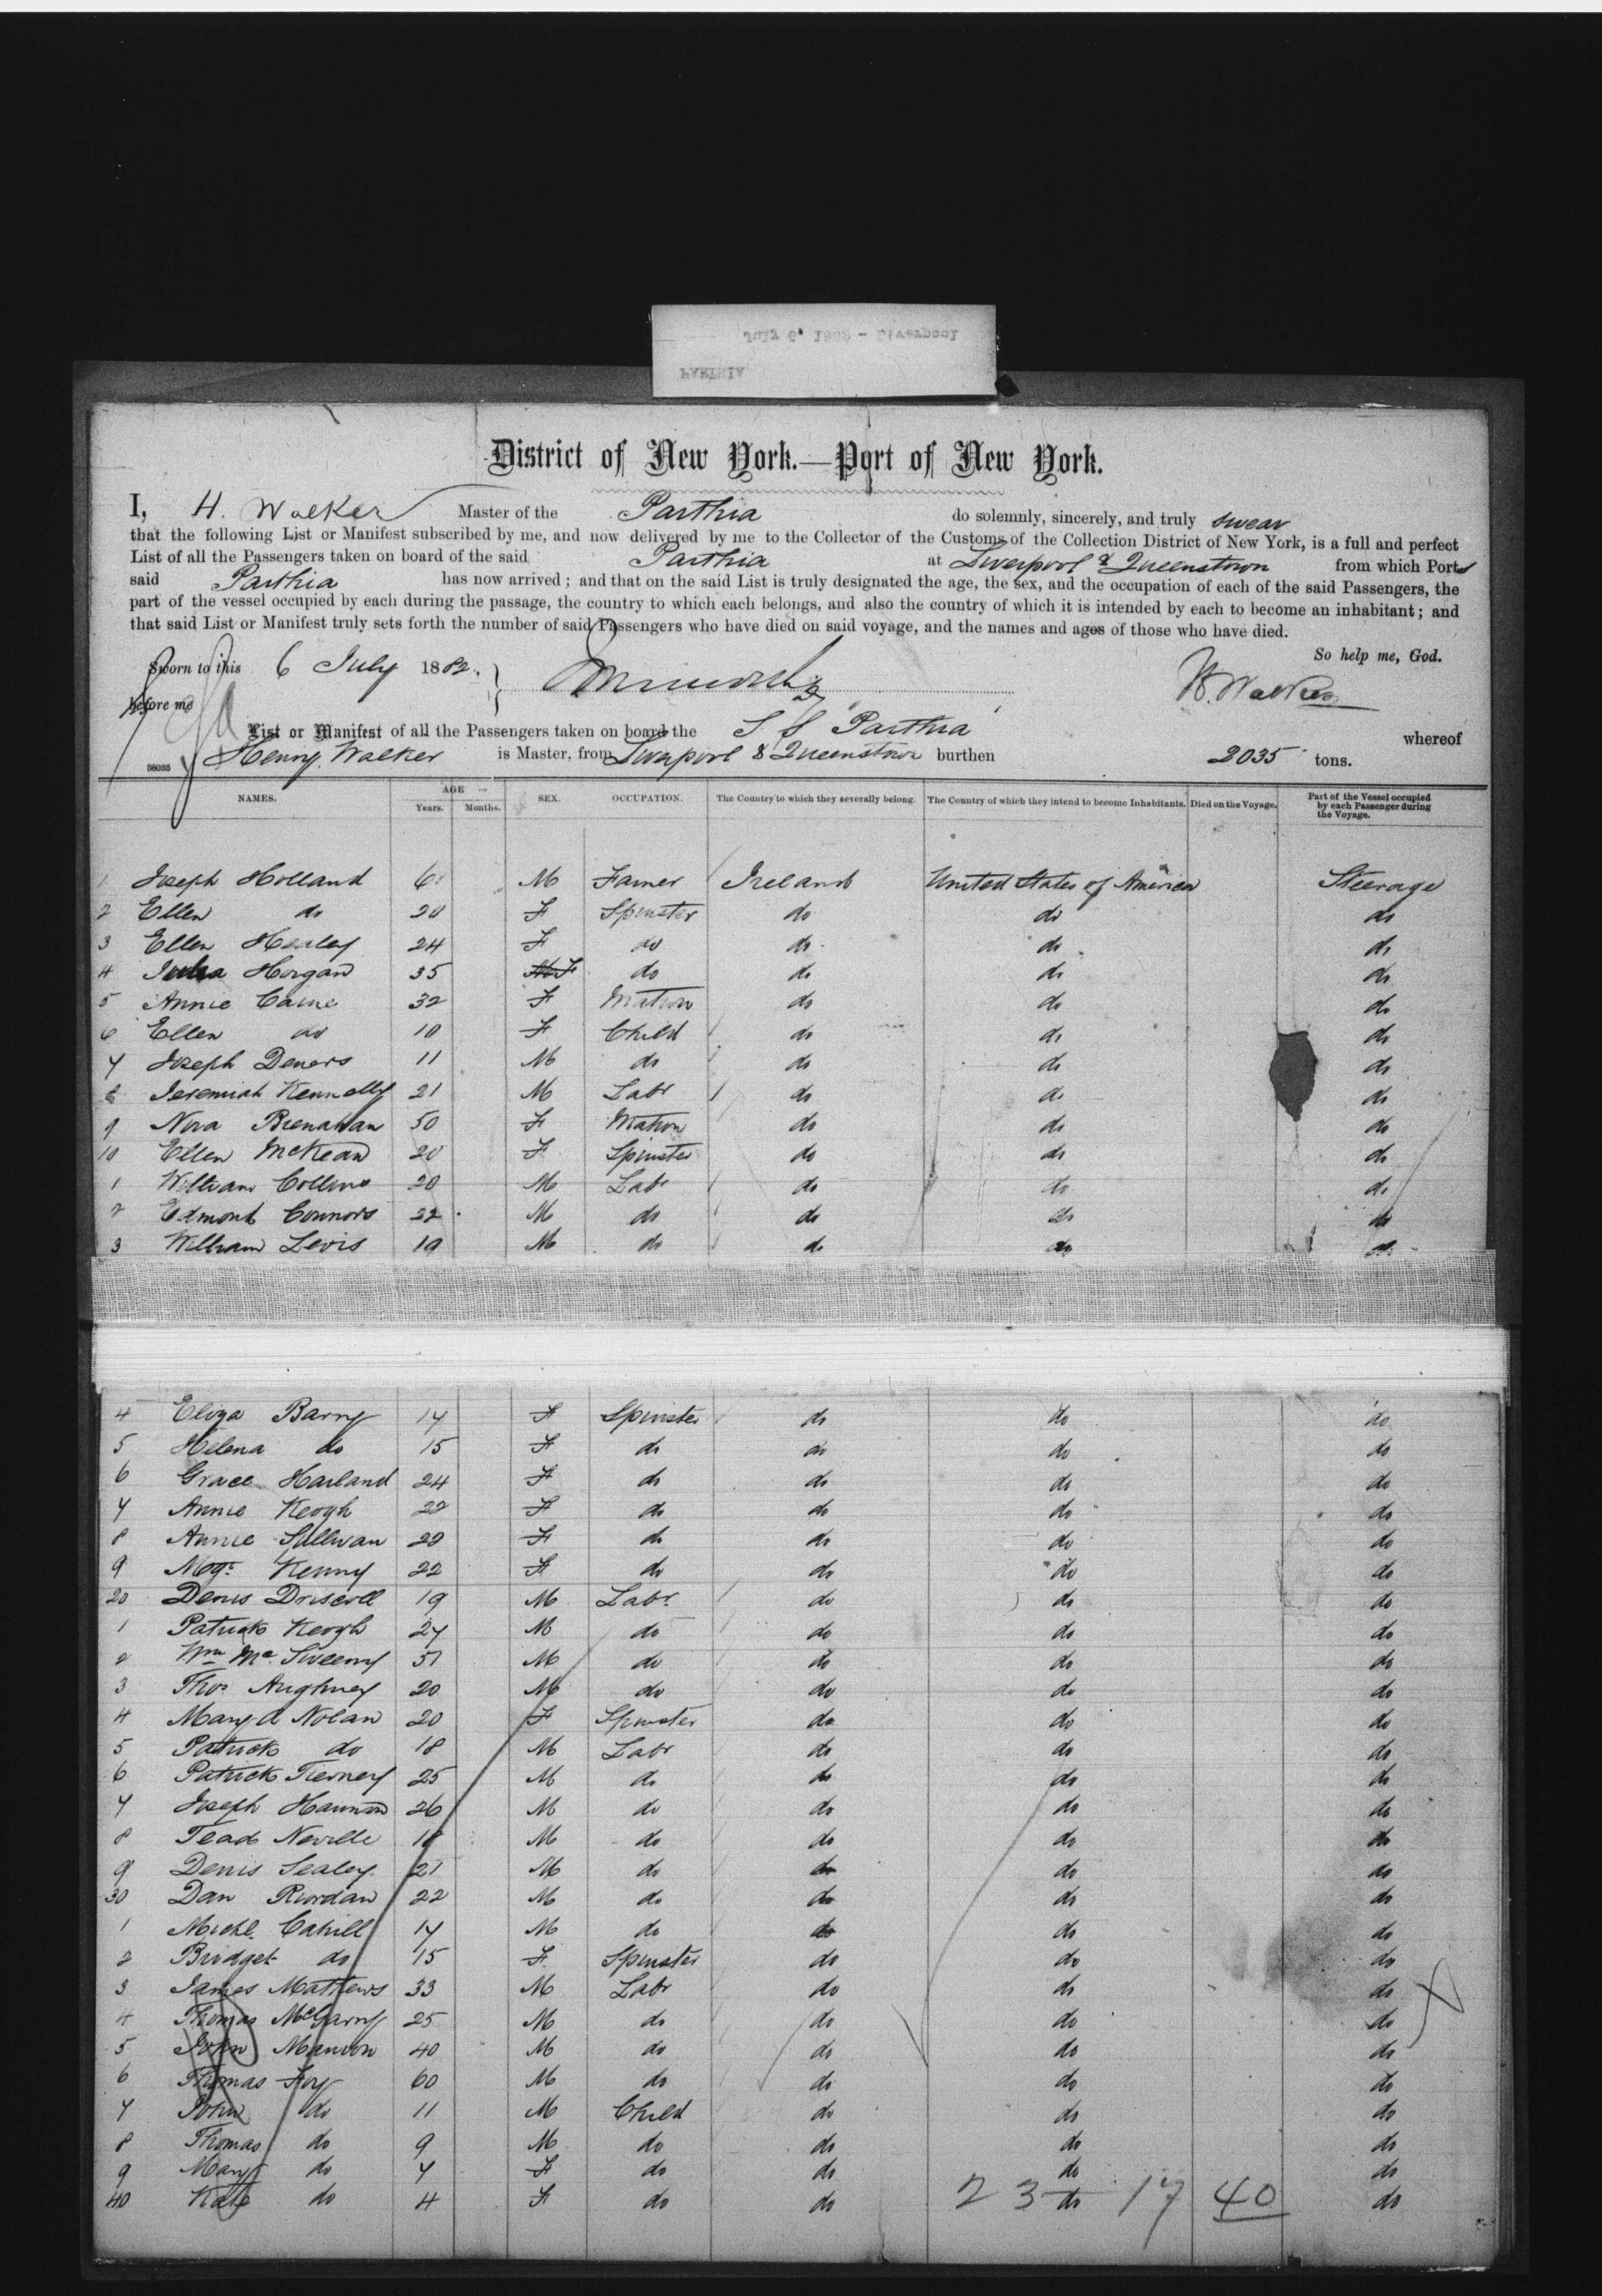 District of New York.—Port of New York.
I, H. Walker Master of the Parthia do solemnly, sincerely, and truly swear
that the following List or Manifest subscribed by me, and now delivered by me to the Collector of the Customs of the Collection District of New York, is a full and perfect
List of all the Passengers taken on board of the said Parthia at Liverpool & Queenstown from which Ports
said Parthia has now arrived; and that on the said List is truly designated the age, the sex, and the occupation of each of the said Passengers, the
part of the vessel occupied by each during the passage, the country to which each belongs, and also the country of which it is intended by each to become an inhabitant; and
that said List or Manifest truly sets forth the number of said Passengers who have died on said voyage, and the names and ages of those who have died.
So help me, God.
Sworn to this 6 July 1882
before me
H. Walker
List or Manifest of all the Passengers taken on board the S S "Parthia" whereof
38035 Henry Walker is Master, from Liverpool & Queenstown burthen 2035 tons.
NAMES. AGE Years. Months. SEX. OCCUPATION. The Country to which they severally belong. The Country of which they intend to become Inhabitants. Died on the Voyage. Part of the Vessel occupied by each Passenger during the Voyage.
1 Joseph Holland M Farmer Ireland United States of America Steerage
2 Ellen do 20 F Spinster do do do
3 Ellen Healey 24 F do do do do
4 Julia Horgan 35 F do do do do
5 Annie Caine 32 F Matron do do do
6 Ellen do 10 F Child do do do
7 Joseph Deners 11 M do do do do
8 Jeremiah Kennelly 21 M Labr do do do
9 Nora Brenahan 50 F Matron do do do
10 Ellen McKean 20 F Spinster do do do
1 William Collins 20 M Labr do do do
2 Edmond Connors 22 M do do do do
3 William Levis 19 M do do do do
4 Eliza Barry 17 F Spinster do do do
5 Helena do 15 F do do do do
6 Grace Harland 24 F do do do do
7 Annie Keogh 22 F do do do do
8 Annie Sullivan 22 F do do do do
9 Mgt Kenny 22 F do do do do
20 Denis Driscoll 19 M Labr do do do
1 Patrick Keogh 27 M do do do do
2 Wm McSweeny 51 M do do do do
3 Thos Aughney 20 M do do do do
4 Mary A Nolan 20 F Spinster do do do
5 Patrick do 18 M Labr do do do
6 Patrick Tierney 25 M do do do do
7 Joseph Hannon 26 M do do do do
8 Tead Neville 18 M do do do do
9 Denis Sealey 21 M do do do do
30 Dan Riordan 22 M do do do do
1 Michl. Cahill 17 M do do do do
2 Bridget do 15 F Spinster do do do
3 James Mathews 33 M Labr do do do
4 Thomas McGarry 25 M do do do do
5 John Mannon 40 M do do do do
6 Thomas Foy 60 M do do do do
7 John do 11 M Child do do do
8 Thomas do 9 M do do do do
9 Mary do 7 F do do do do
40 Kate do 4 F do do do do
23 17 40